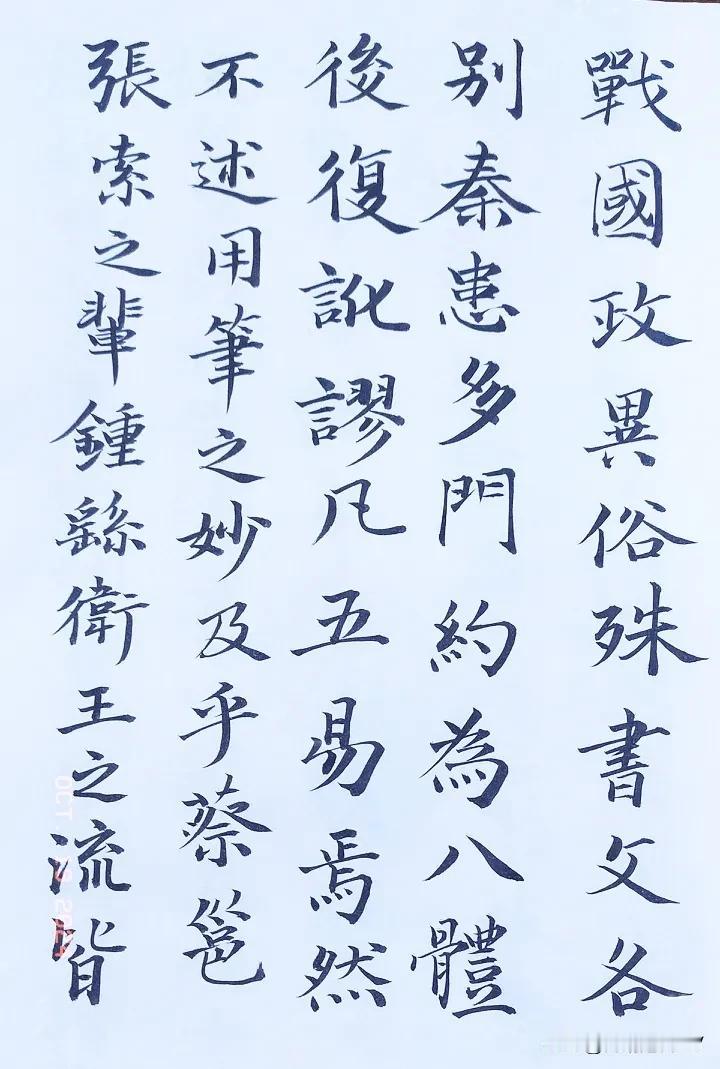 戰國政異俗殊書文各
别秦患多門約為八體
後復訛謬凡五易焉然
不述用筆之妙及乎蔡邕
張索之輩鍾繇衛王之流皆